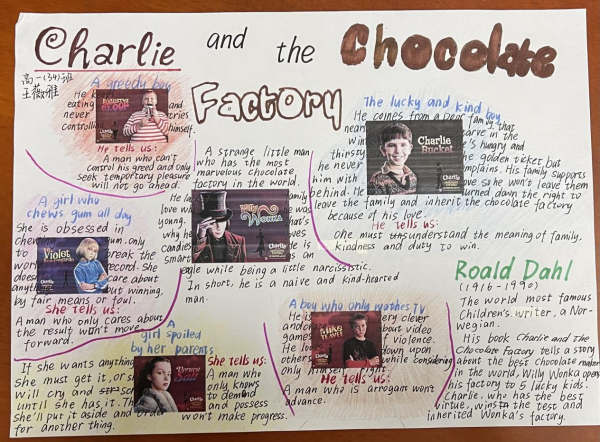 Charlie and the Chocolate
Factory
高一(34)班
王薇雅
A greedy boy
He keeps
eating and
never tries
controlling himself.
AUGUSTUS
GLOOP
He tells us:
A man who can't
control his greed and only
seek temporary pleasure
will not go ahead.
A girl who
chews gum all day
She is obsessed in
chewing gum.only
to break the
world record. She
doesn't care about
anything but winning,
by fair means or foul.
Violet
Charlie
She tells us:
A man who only cares about
the result won't move
forward.
A strange little man
who has the most
marvelous chocolate
factory in the world.
WILLY
WONKA
Charlie
He is an
eagle while being a little narcissistic.
In short, he is a naive and kind-hearted
man.
The lucky and kind boy
He comes from a poor family, that
nearly starve in the
winter. He's hungry and
thirsty the golden ticket but
he never complains. His family supports
him with love so he won't leave them
behind. He turned down the right to
leave the family and inherit the chocolate factory
because of his love.
Charlie
Bucket
He tells us:
One must understand the meaning of family,
kindness and duty to win.
A girl
spoiled
by her parents
If she wants anything
she must get it, or she
will cry and
until she has it. Then
she'll put it aside and order
for another thing.
Veruca
Salt
She tells us:
A man who
only knows
to demand
and possess
won't make progress.
A boy who only watches TV
He is very clever
and about video
games violence.
He looks down upon
others while considering
himself right.
MIKE
TEAVEE
He tells us:
A man who is arrogant won't
advance.
Roald Dahl
(1916-1990)
The world most famous
Children's writer, a Nor-
wegian.
His book Charlie and the
Chocolate Factory tells a story
about the best chocolate maker
in the world, Willy Wonka opens
his factory to 5 lucky kids.
Charlie, who has the best
virtue, wins the test and
inherited Wonka's factory.